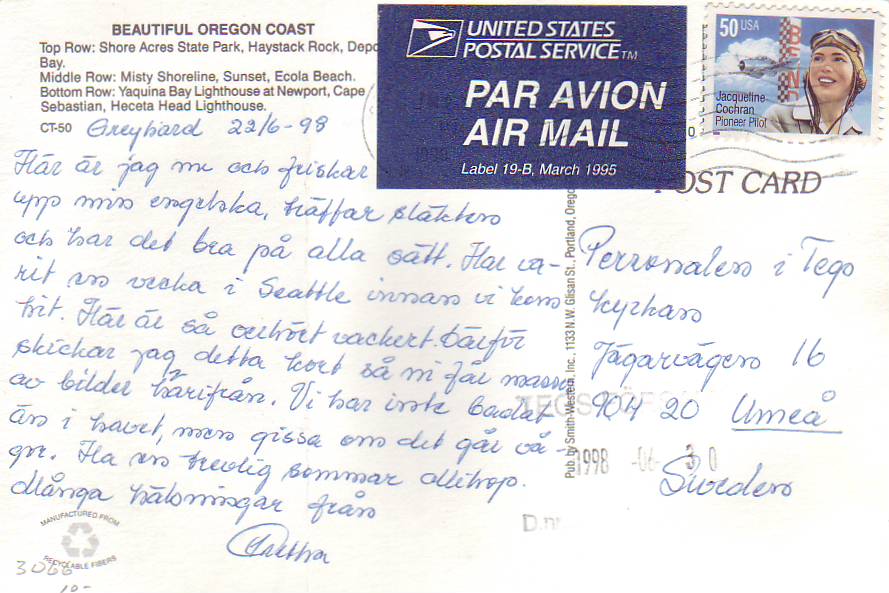 BEAUTIFUL OREGON COAST
Top Row: Shore Acres State Park, Haystack Rock, Depo
Bay.
Middle Row: Misty Shoreline, Sunset, Ecola Beach.
Bottom Row: Yaquina Bay Lighthouse at Newport, Cape
Sebastian, Heceta Head Lighthouse.
CT-50
22/6-98
Här är jag nu och friskar
upp min engelska, träffar släkten
och har det bra på alla sätt. Har va-
rit en vecka i Seattle innan vi kom
hit. Här är så oerhört vackert. Därför
skickar jag detta kort så ni får massa
av bilder härifrån. Vi har inte badat
än i havet, men gissa om det går vå-
gor. Ha en trevlig sommar allihop.
Många hälsningar från
MANUFACTURED FROM
RECYCLABLE FIBERS
3066
10-
UNITED STATES
POSTAL SERVICE TM
PAR AVION
AIR MAIL
Label 19-B, March 1995
50 USA
BEND
Jacqueline
Cochran
Pioneer Pilot
POST CARD
Pub. by Smith-Western, Inc., 1133 N.W. Glisan St., Portland, Orego
Personalen i Tegs
kyrkan
Jägarvägen 16
904 20 Umeå
Sweden
1998 -06- 30
D.nr